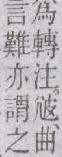 為轉注。𨓏、曲
言難亦謂之